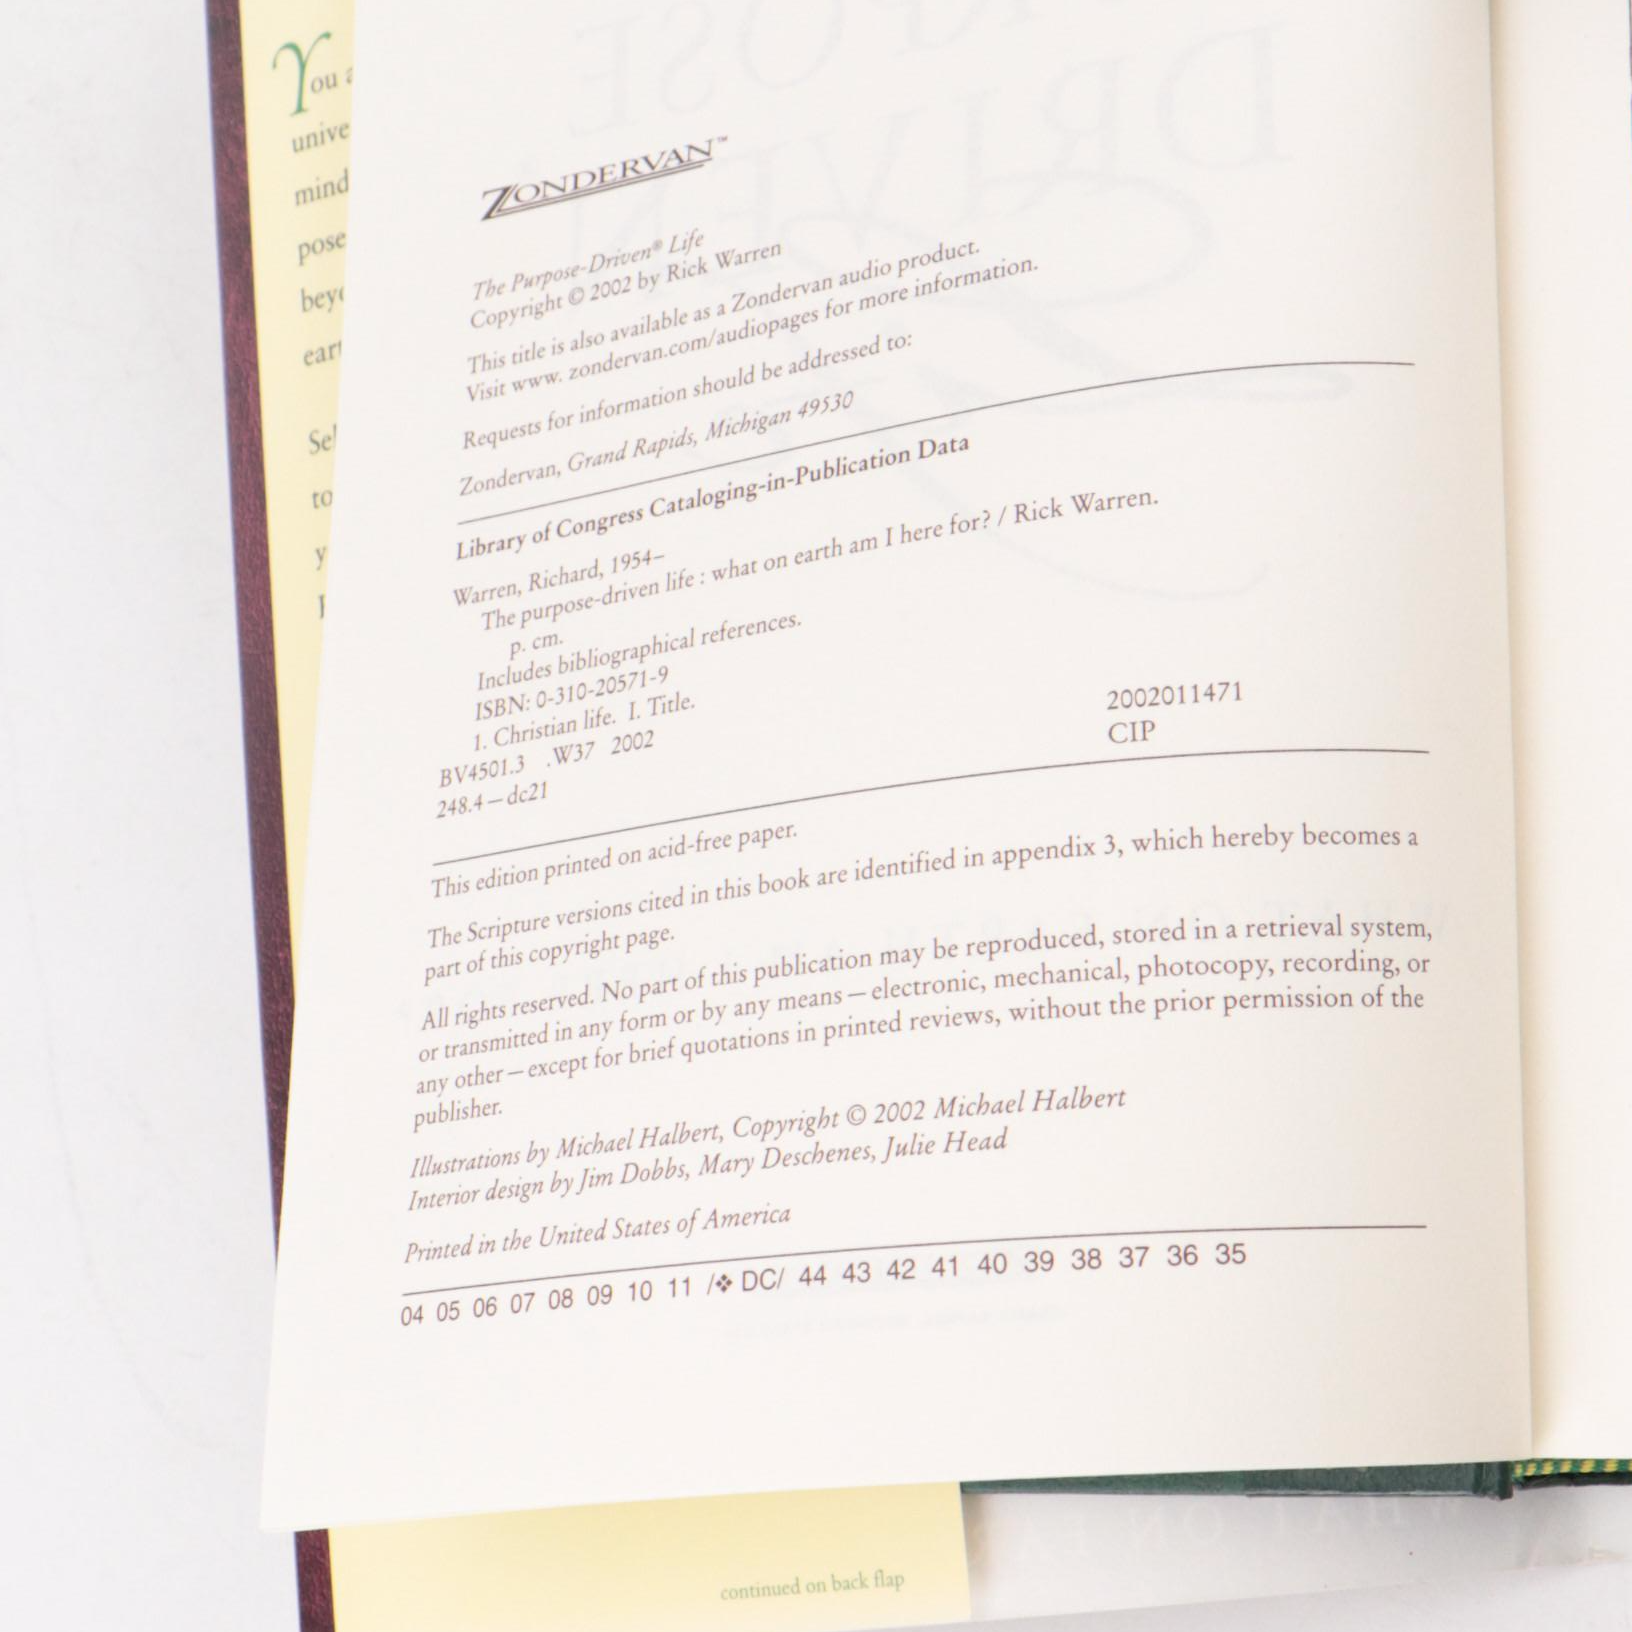 You a
unive
mind
pose
bey
eart
Sel
to
y
ZONDERVAN™
The Purpose-Driven® Life
Copyright © 2002 by Rick Warren
This title is also available as a Zondervan audio product.
Visit www. zondervan.com/audiopages for more information.
Requests for information should be addressed to:
Zondervan, Grand Rapids, Michigan 49530
Library of Congress Cataloging-in-Publication Data
Warren, Richard, 1954–
The purpose-driven life : what on earth am I here for? / Rick Warren.
p. cm.
Includes bibliographical references.
ISBN: 0-310-20571-9
1. Christian life. I. Title.
BV4501.3 .W37 2002
248.4—dc21
2002011471
CIP
This edition printed on acid-free paper.
The Scripture versions cited in this book are identified in appendix 3, which hereby becomes a
part of this copyright page.
All rights reserved. No part of this publication may be reproduced, stored in a retrieval system,
or transmitted in any form or by any means—electronic, mechanical, photocopy, recording, or
any other—except for brief quotations in printed reviews, without the prior permission of the
publisher.
Illustrations by Michael Halbert, Copyright © 2002 Michael Halbert
Interior design by Jim Dobbs, Mary Deschenes, Julie Head
Printed in the United States of America
04 05 06 07 08 09 10 11 /❖ DC/ 44 43 42 41 40 39 38 37 36 35
continued on back flap